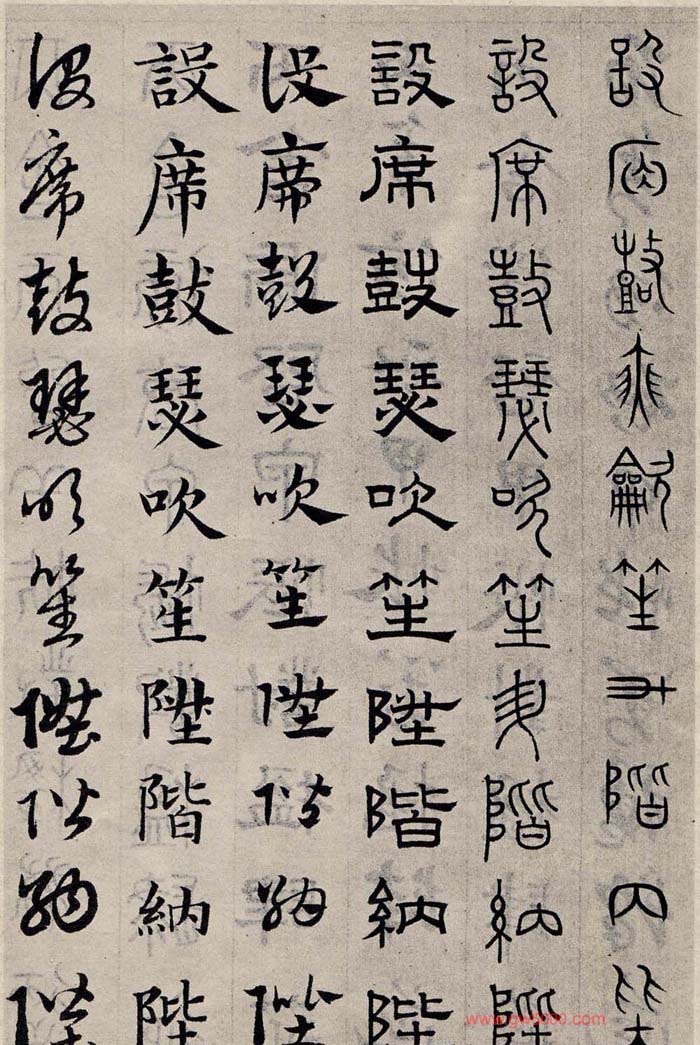 設席鼓瑟龡笙升階内
設席鼓瑟吹笙升階納陛
設席鼓瑟吹笙陞階納陛
設席鼓瑟吹笙陞階納陛
設席鼓瑟吹笙陞階納陛
設席鼓瑟吹笙陞階納陛